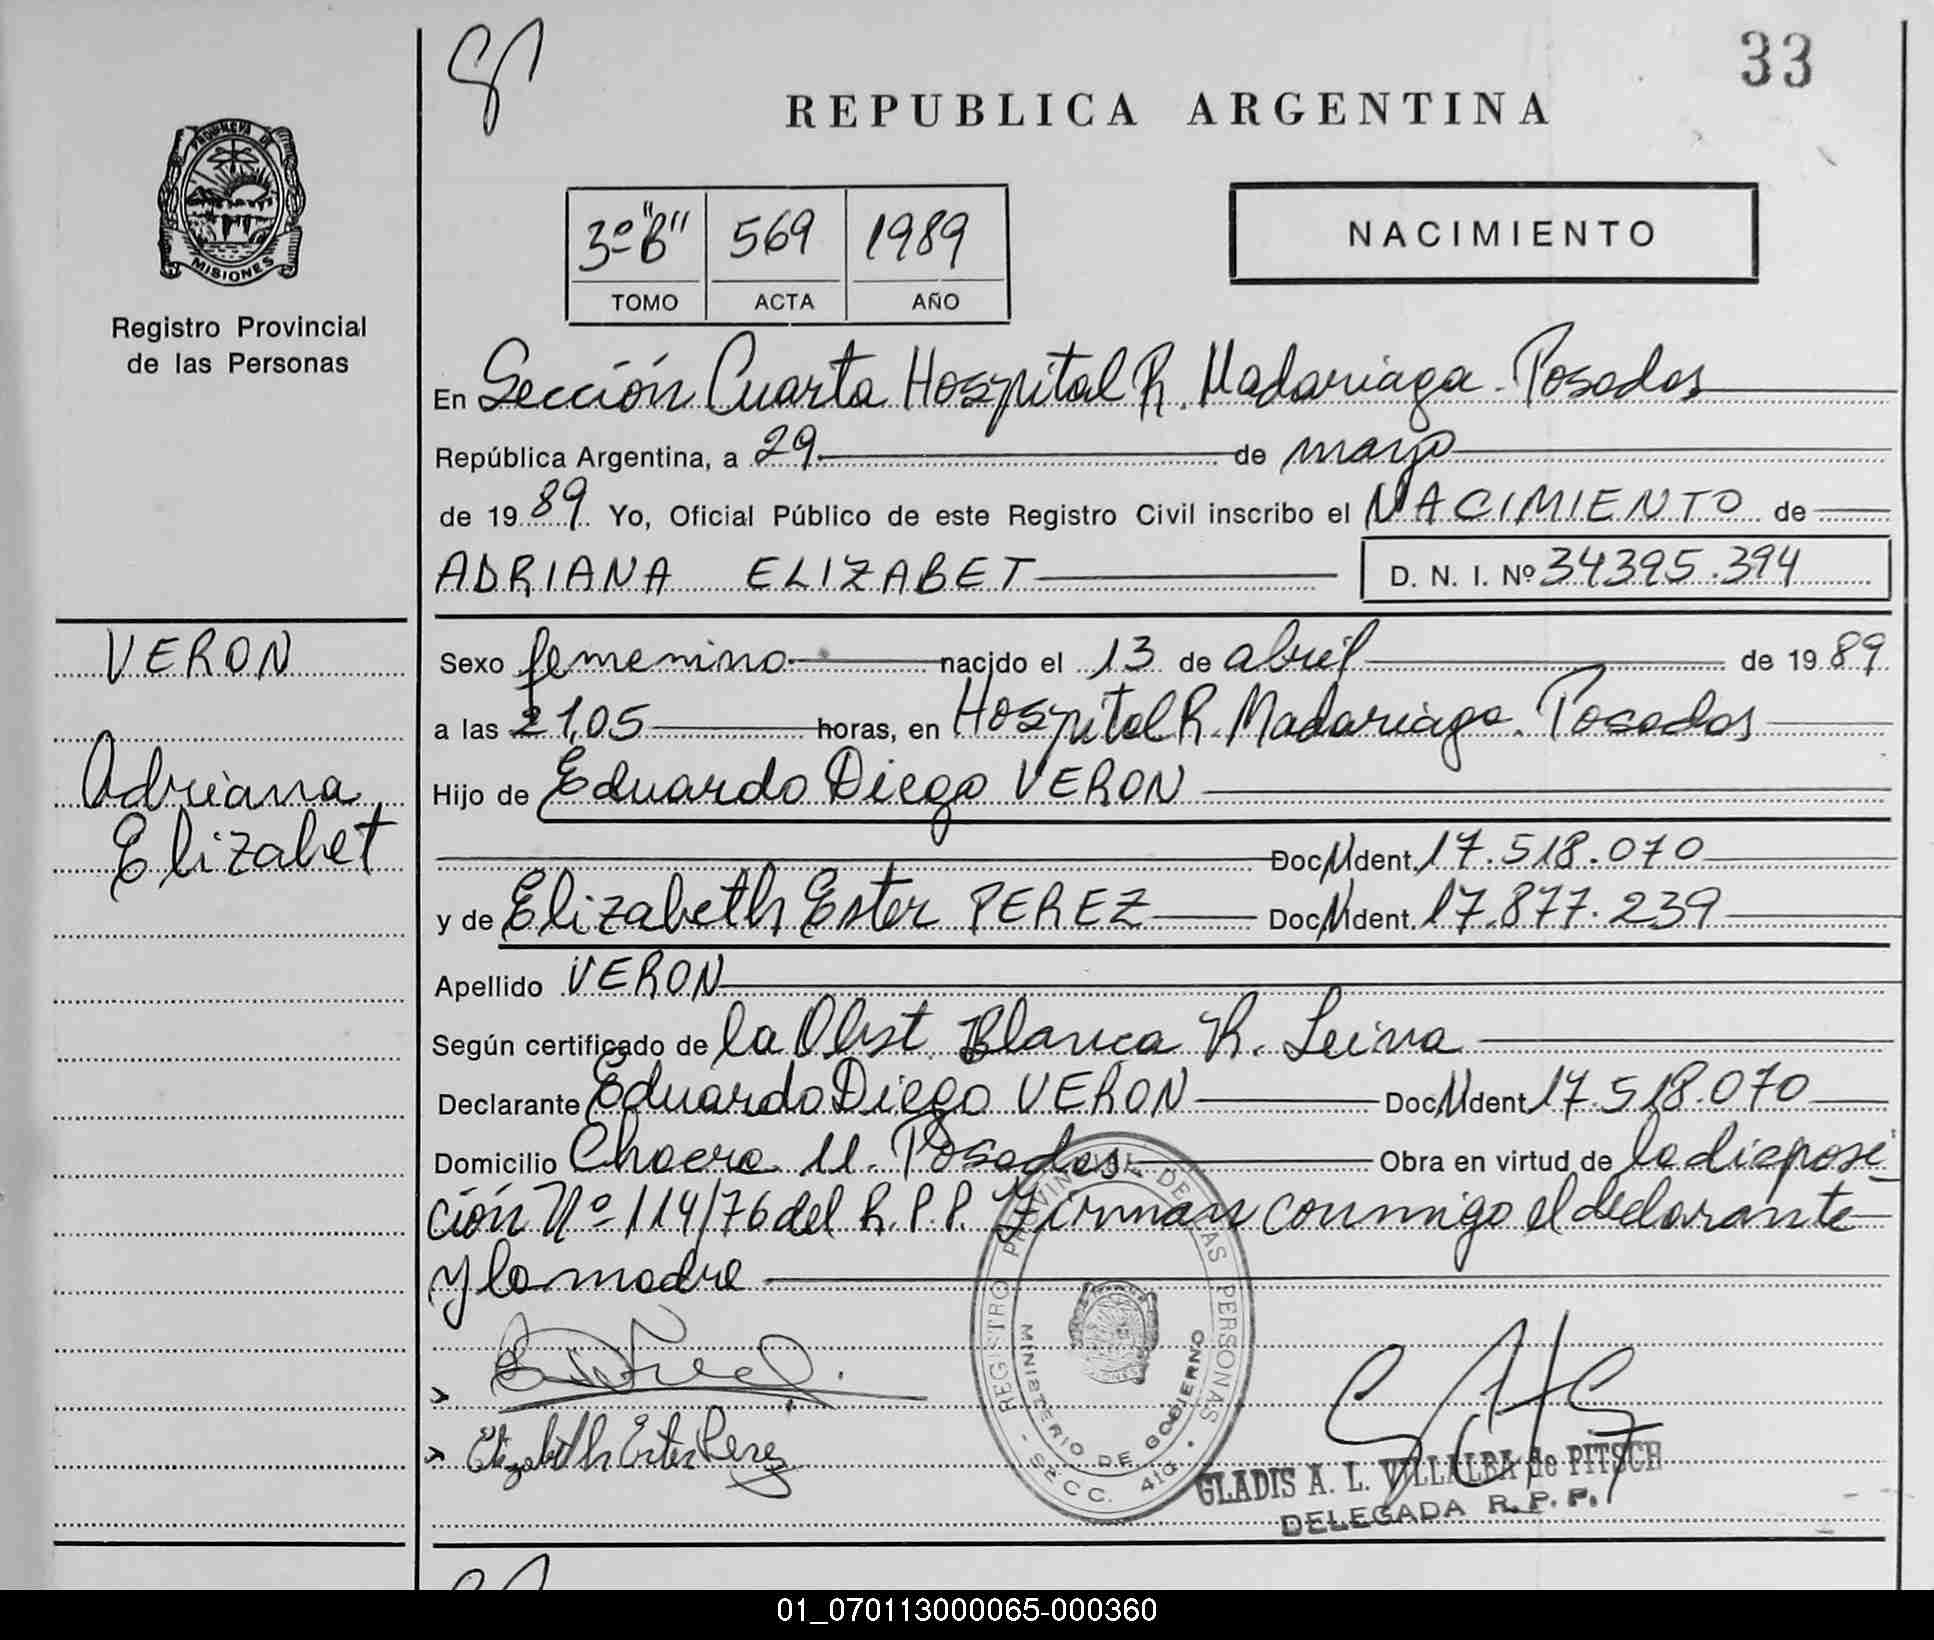 33
REPUBLICA ARGENTINA
PROVINCIA DE
MISIONES
Registro Provincial
de las Personas
3º "B" 569 1989
TOMO ACTA AÑO
NACIMIENTO
En Sección Cuarta Hospital R. Madariaga - Posadas
República Argentina, a 29 de mayo
de 1989 Yo, Oficial Público de este Registro Civil inscribo el NACIMIENTO de
ADRIANA ELIZABET D. N. I. Nº 34395.394
VERON
Adriana
Elizabet
Sexo femenino nacido el 13 de abril de 1989
a las 21,05 horas, en Hospital R. Madariaga. Posadas
Hijo de Eduardo Diego VERON
Doc. Ident. 17.518.070
y de Elizabeth Ester PEREZ Doc. Ident. 17.877.239
Apellido VERON
Según certificado de la Obst. Blanca R. Leiva
Declarante Eduardo Diego VERON Doc. Ident. 17.518.070
Domicilio Chacra 11. Posadas Obra en virtud de la disposi
ción Nº 114/76 del R.P.P. Firman conmigo el declarante
y la madre
REGISTRO PROVINCIAL DE LAS PERSONAS
MINISTERIO DE GOBIERNO
- SECC. 4ta. -
Elizabeth Ester Perez
GLADIS A. L. VILLALBA de PITSCH
DELEGADA R. P. P.
01_070113000065-000360